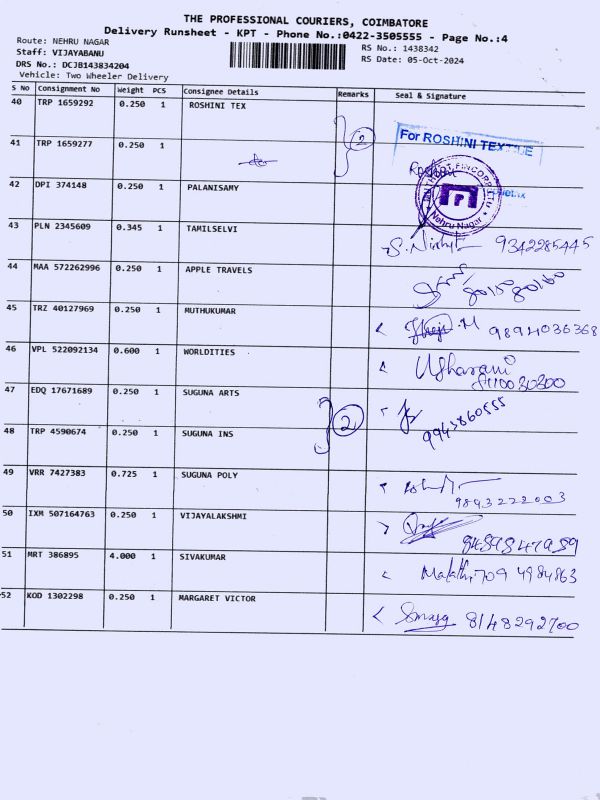 THE PROFESSIONAL COURIERS, COIMBATORE
Delivery Runsheet - KPT - Phone No.:0422-3505555 - Page No.:4
Route: NEHRU NAGAR
RS No.: 1438342
Staff: VIJAYABANU
RS Date: 05-Oct-2024
DRS No.: DCJB143834204
Vehicle: Two Wheeler Delivery
S No Consignment No Weight PCS Consignee Details Remarks Seal & Signature
40 TRP 1659292 0.250 1 ROSHINI TEX
2 For ROSHINI TEXTILE
41 TRP 1659277 0.250 1
42 DPI 374148 0.250 1 PALANISAMY
Nehru Nagar
43 PLN 2345609 0.345 1 TAMILSELVI
9342285445
44 MAA 572262996 0.250 1 APPLE TRAVELS
45 TRZ 40127969 0.250 1 MUTHUKUMAR
9894036368
46 VPL 522092134 0.600 1 WORLDITIES
47 EDQ 17671689 0.250 1 SUGUNA ARTS
2 9943860555
48 TRP 4590674 0.250 1 SUGUNA INS
49 VRR 7427383 0.725 1 SUGUNA POLY
9893222003
50 IXM 507164763 0.250 1 VIJAYALAKSHMI
51 MRT 386895 4.000 1 SIVAKUMAR
Malathi 709 4984863
52 KOD 1302298 0.250 1 MARGARET VICTOR
8148292700